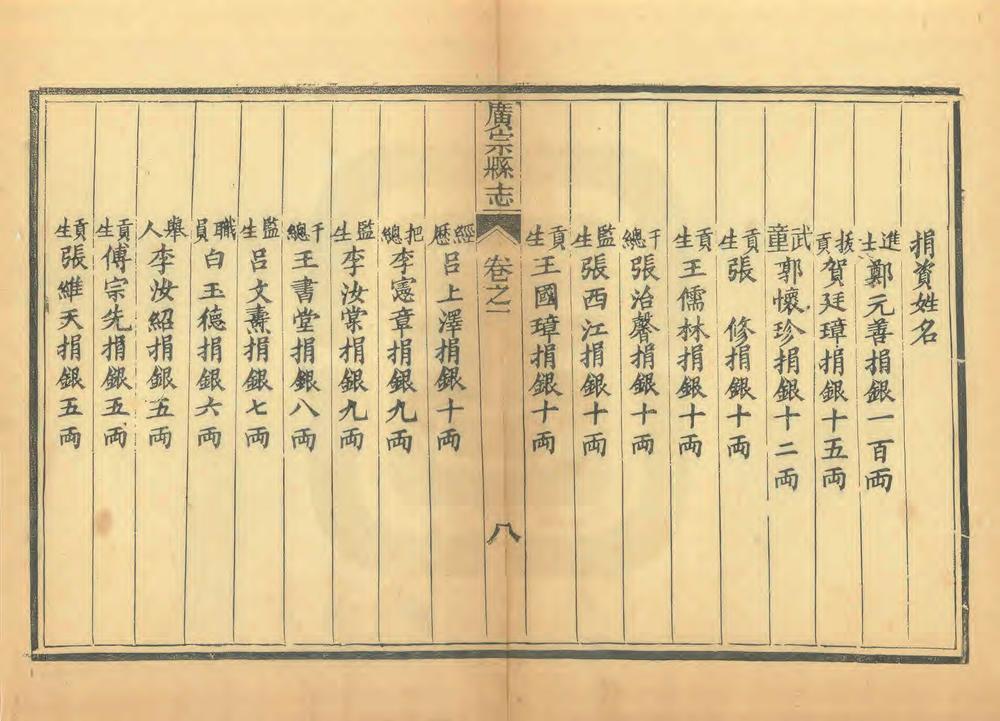 捐資姓名
進士鄭元善捐銀一百両
拔貢賀廷璋捐銀十五両
武童郭懷珍捐銀十二両
貢生張　修捐銀十両
貢生王儒林捐銀十両
千總張治馨捐銀十両
監生張西江捐銀十両
貢生王國璋捐銀十両
廣宗縣志
卷之一
八
經歷呂上澤捐銀十両
把總李憲章捐銀九両
監生李汝棠捐銀九両
千總王書堂捐銀八両
監生呂文燾捐銀七両
職員白玉德捐銀六両
舉人李汝紹捐銀五両
貢生傅宗先捐銀五両
貢生張維天捐銀五両